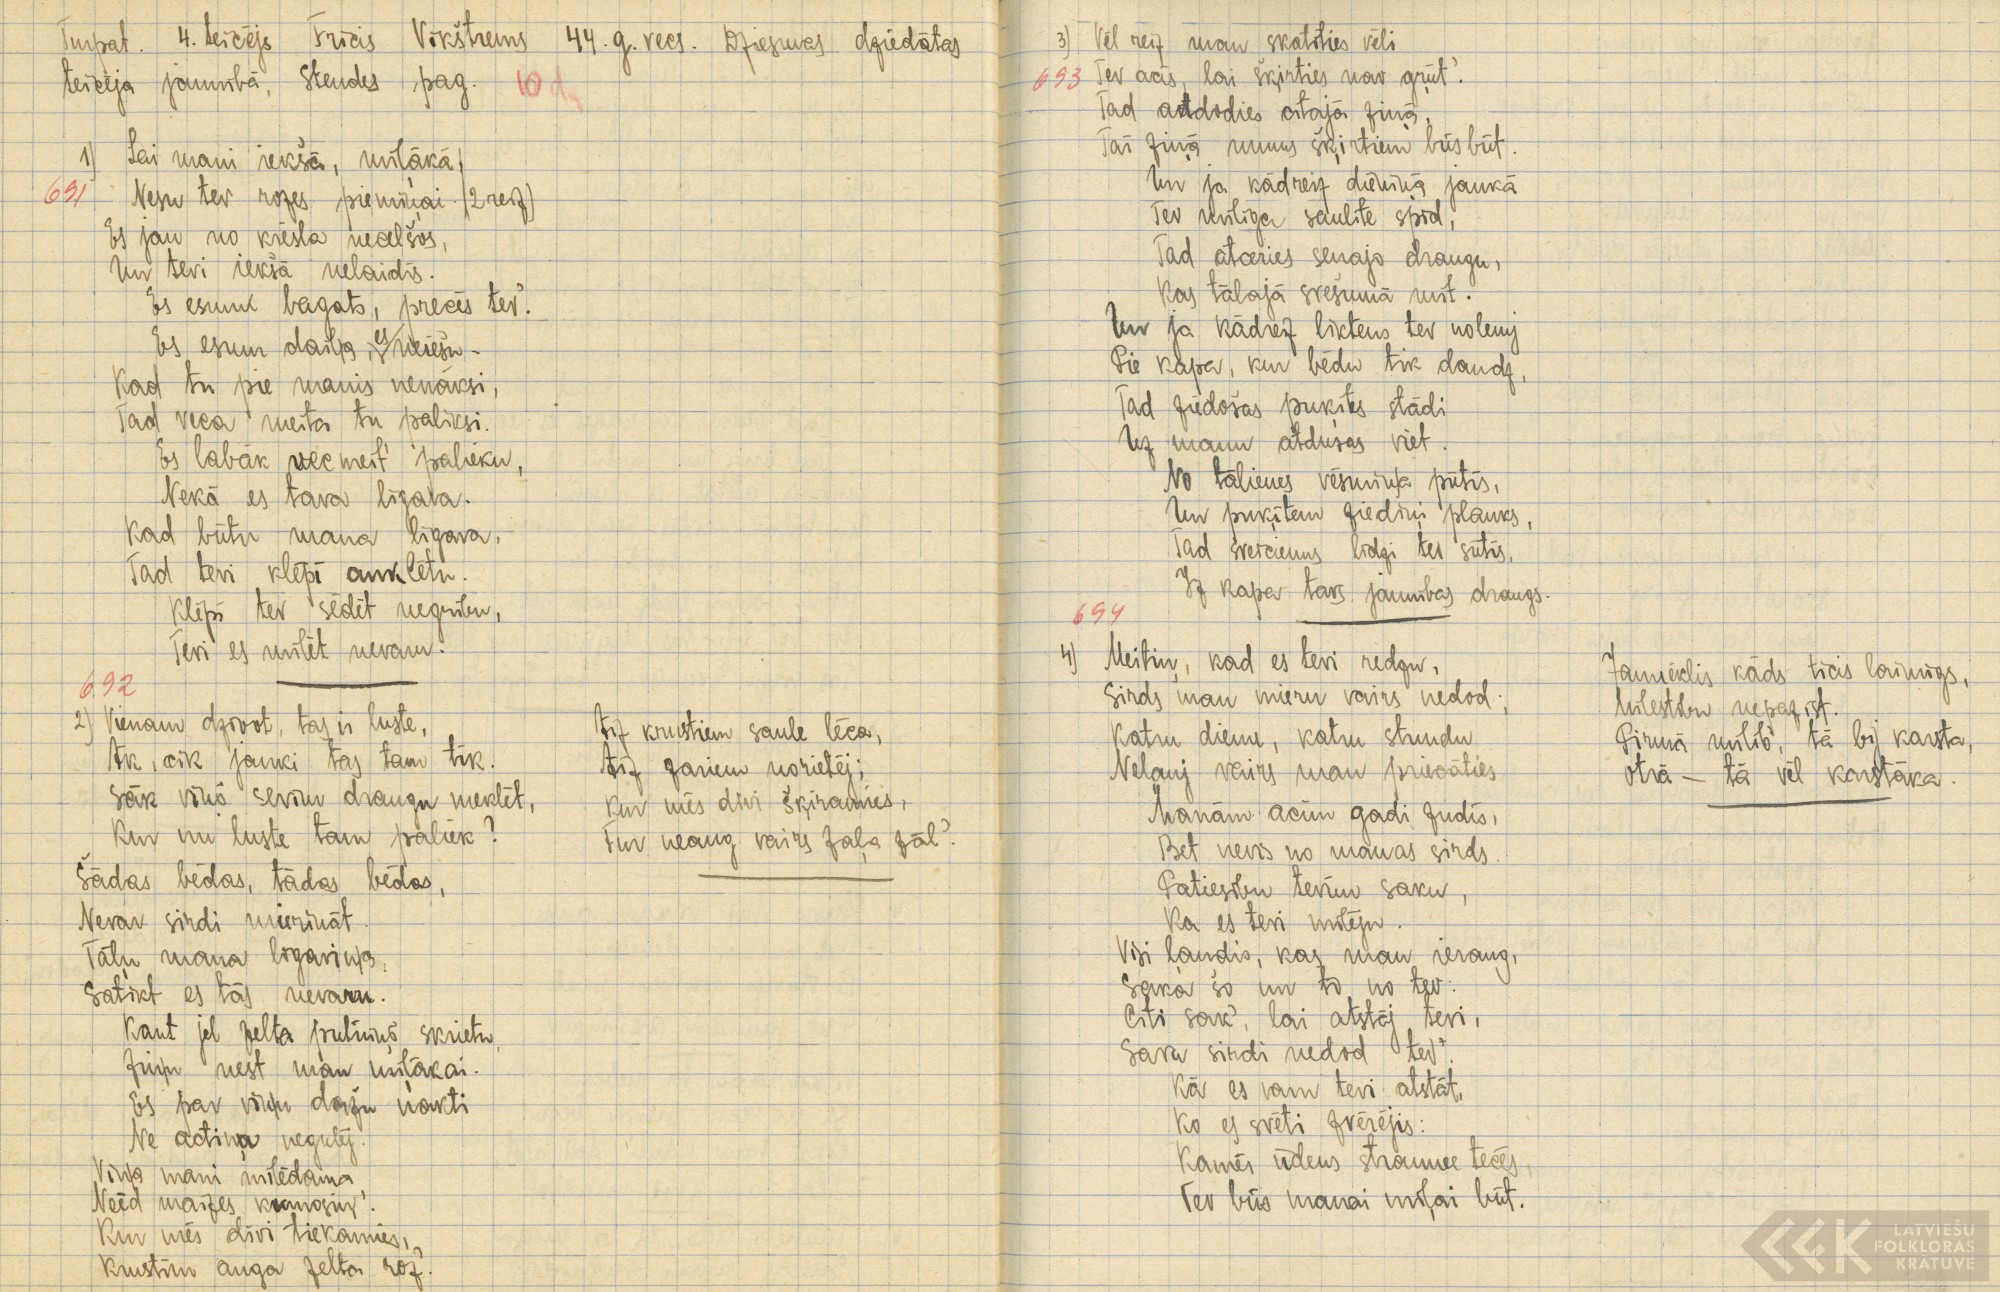 Turpat. 4. teicējs Fricis Vikštrems 44. g. vecs. Dziesmas dziedātas
teicēja jaunībā, Stendes pag. 10 dz
1) Lai mani iekšā, mīļākā,
691 Nesu tev rozes piemiņai. (2 reiz)
Es jau no krēsla necelšos,
Un tevi iekšā nelaidīs.
Es esmu bagats, precēs tev'.
Es esmu daiļa, es neiešu –
Kad tu pie manis nenāksi,
Tad veca meita tu paliksi.
Es labāk vecmeit' palieku,
Nekā es tava līgava.
Kad būtu mana līgava,
Tad tevi klēpī aukletu.
Klēpī tev sēdēt negribu,
Tevi es mīlēt nevaru.
692
2) Vienam dzīvot, tas ir luste,
Ak, cik jauki tas tam tīk.
Sāk viņš sevim draugu meklēt,
Kur nu luste tam paliek?
Šādas bēdas, tādas bēdas,
Nevar sirdi mierināt.
Tālu mana līgaviņa,
Satikt es tās nevaru.
Kaut jel zelta putniņš skrietu,
Ziņu nest man mīļākai.
Es par viņu dažu nakti
Ne actiņa negulēj.
Viņa mani mīlēdama
Neēd maizes kumosiņ'.
Kur mēs divi tiekamies,
Krustim auga zelta roz'.
Aiz krustiem saule lēca,
Aiz zariem norietēj;
Kur mēs divi šķiramies,
Tur neaug vairs zaļa zāl'.
3) Vēl reiz man skatīties vēli
693 Tev acīs, lai šķirties nav grūt'.
Tad atdodies citajā ziņā,
Tai ziņā mums šķirtiem būs būt.
Un ja kādreiz dieniņā jaukā
Tev mīlīga saulīte spīd,
Tad atceries senajo draugu,
Kas tālajā svešumā mīt.
Un ja kādreiz liktens tev nolemj
Pie kapa, kur bēdu tik daudz,
Tad ziedošas puķītes stādi
Uz manu atdusas viet.
No tālienes vēsmiņa pūtīs,
Un puķītem ziediņi plauks,
Tad sveicienus līdzi tev sūtīs,
Iz kapa tavs jaunības draugs.
694
4) Meitiņ, kad es tevi redzu,
Sirds man mieru vairs nedod;
Katru dienu, katru stundu
Nelauj vairs man priecāties
Manām acīm gadi zudīs,
Bet nevis no manas sirds.
Patiesību tevim saku,
Ka es tevi mīlēju.
Visi ļaudis, kas man ieraug,
Saka šo un to no tev:
Citi sak', lai atstāj tevi,
Savu sirdi nedod tev'.
Kā es varu tevi atstāt,
Ko es svēti zvērējis:
Kamēr ūdens straume tecēs,
Tev būs manai mīļai būt.
Jauneklis kāds ticis laimīgs,
Mīlestību nepazīst.
Pirmā mīlīb', tā bij karsta,
Otrā – tā vēl karstāka.
LATVIEŠU
FOLKLORAS
KRATUVE